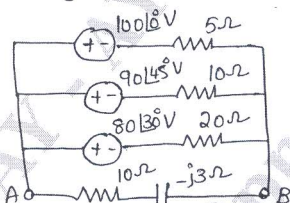 100∠0°V 5Ω
+ -
90∠45°V 10Ω
+ -
80∠30°V 20Ω
+ -
10Ω -j3Ω
A B